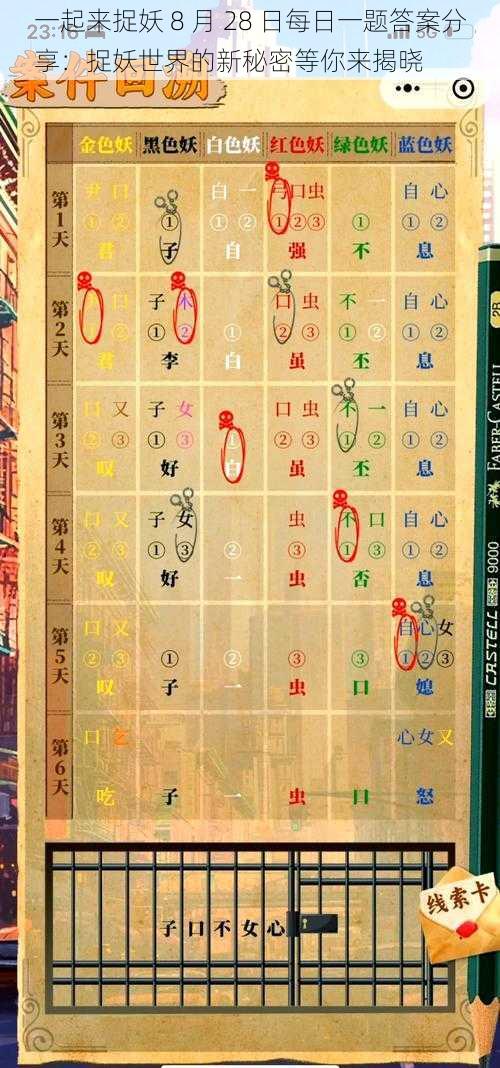 一起来捉妖 8 月 28 日每日一题答案分
享：捉妖世界的新秘密等你来揭晓
23:16
5G
案件回溯
金色妖 黑色妖 白色妖 红色妖 绿色妖 蓝色妖
第1天
尹 口 白 一 弓 口 虫 自 心
① ② ① ① ② ① ② ③ ① ① ②
君 子 自 强 不 息
第2天
口 子 木 口 虫 不 一 自 心
① ② ① ② ① ② ③ ① ② ① ②
君 李 白 虽 丕 息
第3天
口 又 子 女 口 虫 不 一 自 心
② ③ ① ③ ① ② ③ ① ② ① ②
叹 好 白 虽 丕 息
第4天
口 又 子 女 虫 不 口 自 心
② ③ ① ③ ② ③ ① ③ ① ②
叹 好 一 虫 否 息
第5天
口 又 自 心 女
② ③ ① ② ③ ③ ① ② ③
叹 子 一 虫 口 媳
第6天
口 乞 心 女 又
吃 子 一 虫 口 怒
子 口 不 女 心
线索卡
FABER-CASTELL
CASTELL 9000
2B